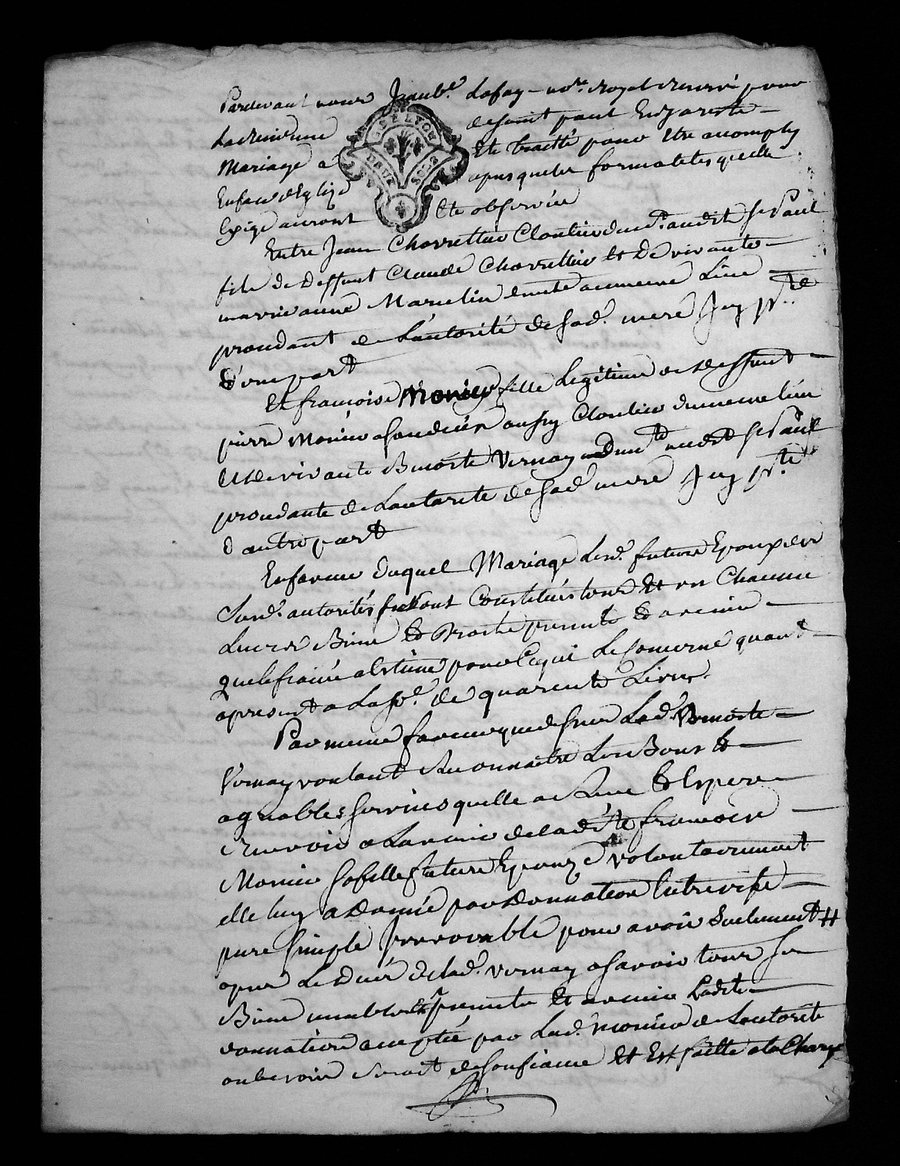 Pardevant nous Jean Bte Lafay no.re royal réservé pour
La résidence de saint paul En Jarest
Mariage a Eté traitté pour Etre accomply
Enface d'Eglize apres que les formalités quelle
Exige auront Eté observées
GEN DE LYON
DEUX SOLS
Entre Jean Chorrettier Cloutier dud. audit St Paul
fils de Deffunt Claude Chorrettier Et De vivante
marrie anne Marcelin du meme Lieu
procedant de L'autorité de sad. mere Icy pnte
D'une part
Et francoise Monier fille Legitime de Deffunt
pierre Monier aussy Cloutier du meme lieu
Et de vivante Benoite Vernay audit St Paul
procedante de Lautorité de sad. mere Icy pnte
d'autre part
En faveur duquel Mariage Lesd. futurs Epoux de
Susd. autorités se sont Constitués tous Et un Chacun
Leurs Biens Et Droits presents Et avenir
pour Ce qui Le concerne quant
apresent a La so. de quarente Livres.
Par meme faveur que dessus Lad. Benoite
Vernay voulant Reconnaitre Les Bons Et
agreables services quelle a Reçu Et Espere
recevoir a L'avenir de ladite francoise
Monier sa fille future Epouze volontairement
elle luy a Donné par Donnation Entrevifs
pure simple irrevocable pour avoir seulement
apres Le deces de lad. Vernay a savoir tous ses
Biens meubles presents Et avenir Ladite
donnation acceptée par Lad. Monier de Lautorité
Et Est faitte a la Charge